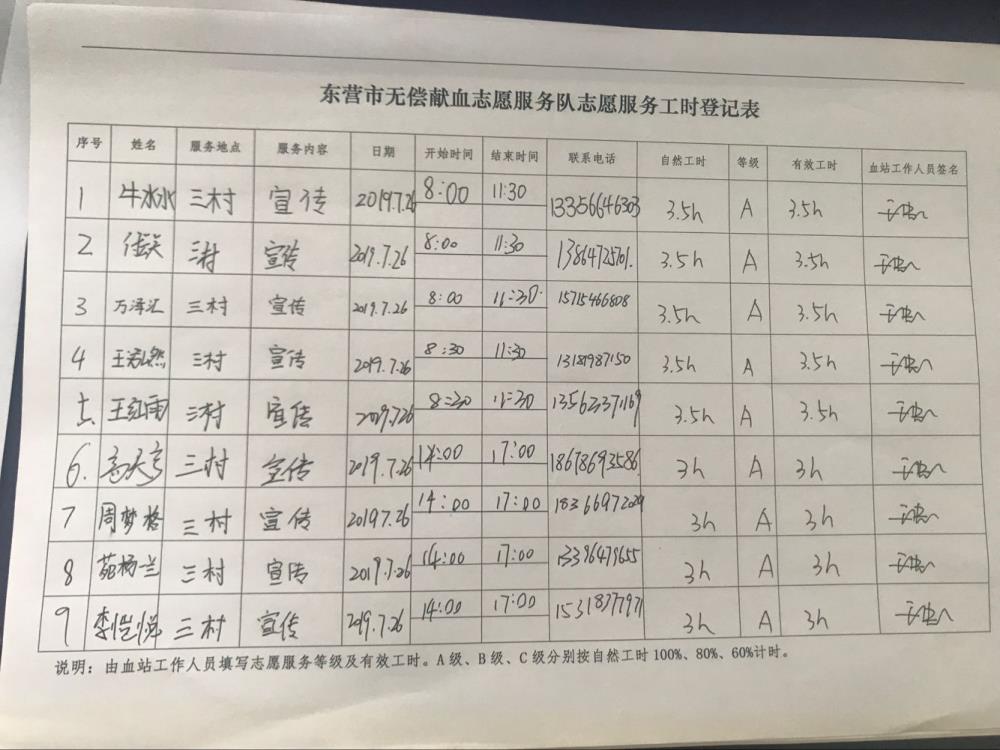 东营市无偿献血志愿服务队志愿服务工时登记表
序号 姓名 服务地点 服务内容 日期 开始时间 结束时间 联系电话 自然工时 等级 有效工时 血站工作人员签名
1 牛冰冰 三村 宣传 2019.7.26 8:00 11:30 13356646303 3.5h A 3.5h
2 三村 宣传 2019.7.26 8:00 11:30 3.5h A 3.5h
3 万泽汇 三村 宣传 2019.7.26 8:00 11:30 15715466808 3.5h A 3.5h
4 三村 宣传 2019.7.26 8:30 11:30 13181987150 3.5h A 3.5h
5. 王红雨 三村 宣传 2019.7.26 8:30 11:30 13562371169 3.5h A 3.5h
6. 三村 宣传 2019.7.26 14:00 17:00 18678693586 3h A 3h
7 周梦格 三村 宣传 2019.7.26 14:00 17:00 3h A 3h
8 苑杨兰 三村 宣传 2019.7.26 14:00 17:00 13396479655 3h A 3h
9 李恺悦 三村 宣传 2019.7.26 14:00 17:00 15318377971 3h A 3h
说明：由血站工作人员填写志愿服务等级及有效工时。A级、B级、C级分别按自然工时100%、80%、60%计时。